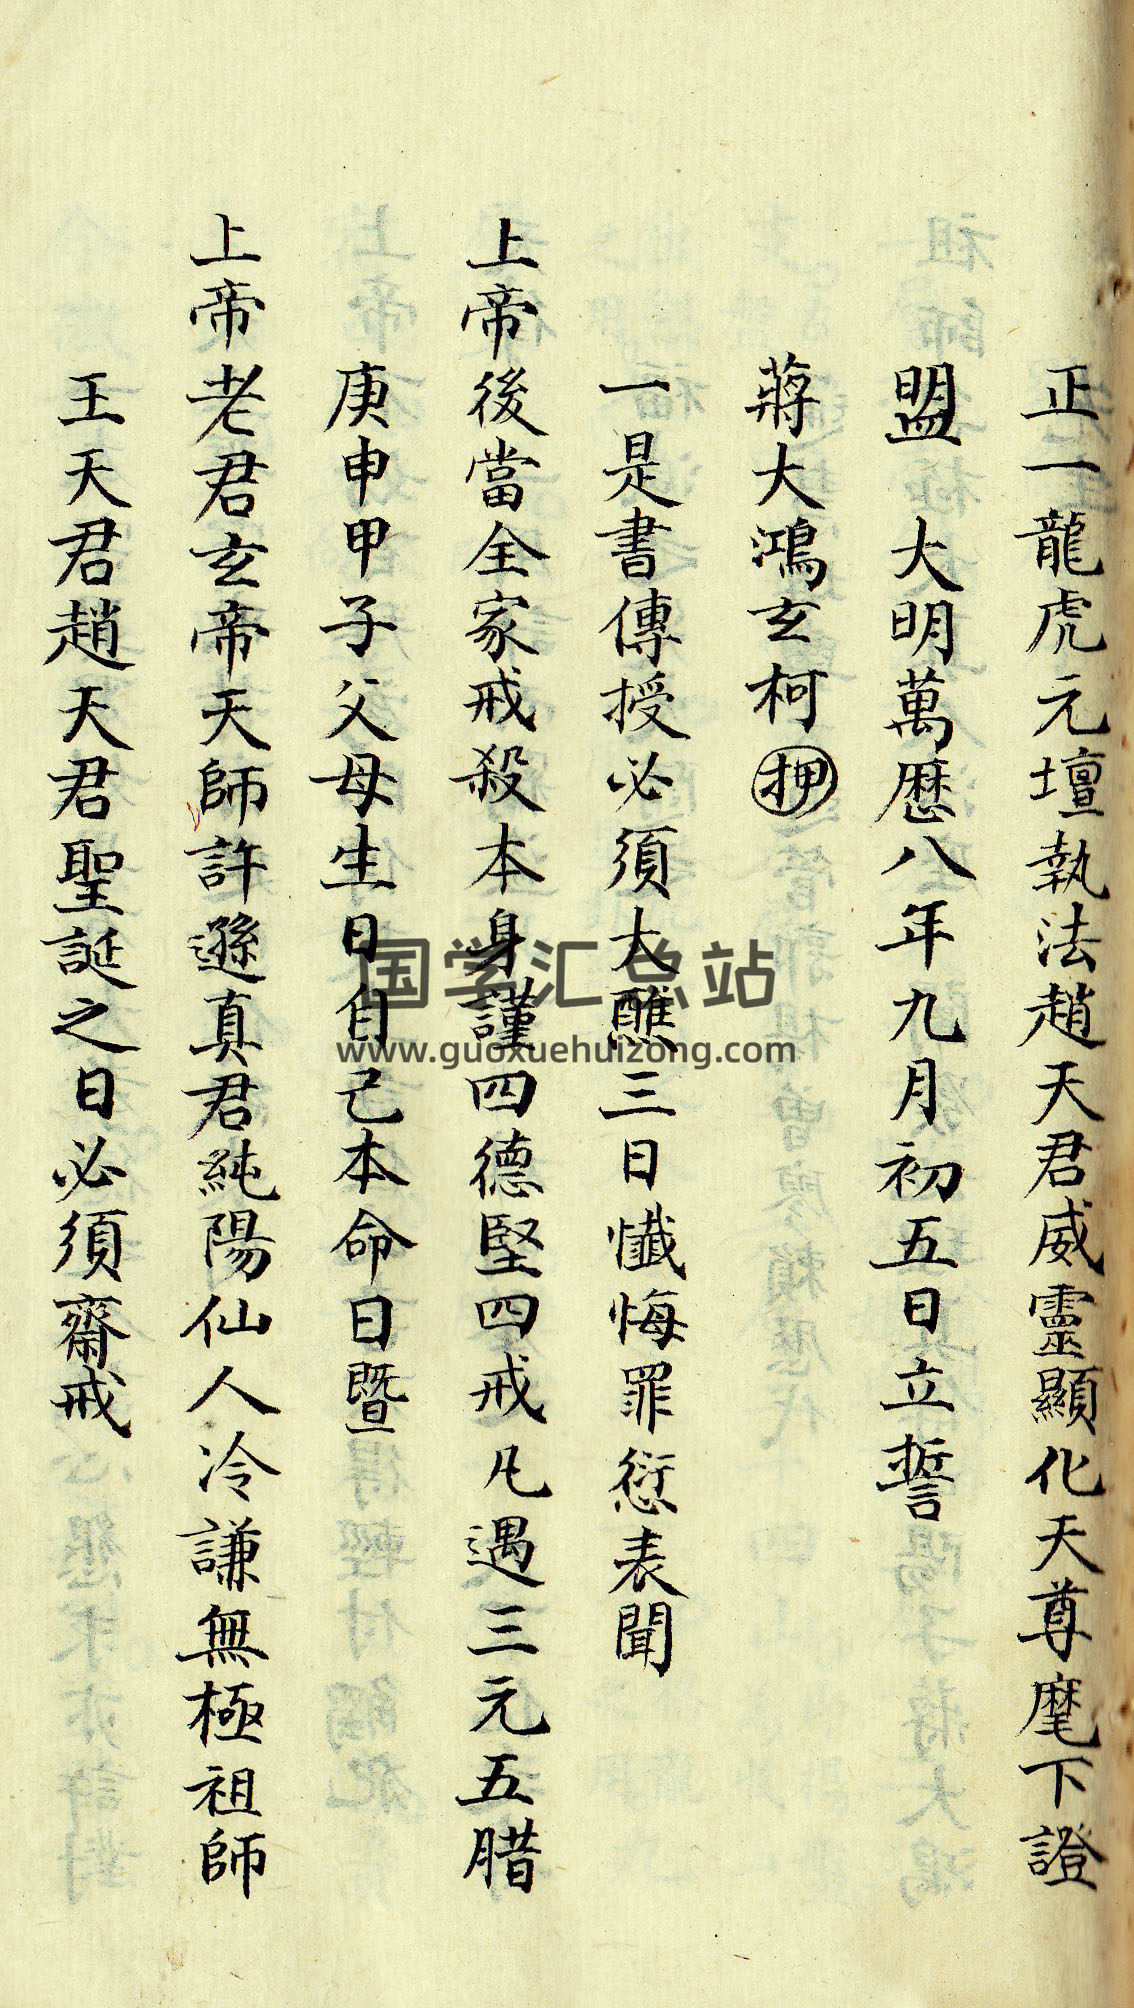 正一龍虎元壇執法趙天君威靈顯化天尊麾下證
盟　大明萬歷八年九月初五日立誓
蔣大鴻玄柯押
一是書傳授必須大醮三日懺悔罪愆表聞
上帝後當全家戒殺本身謹四德堅四戒凡遇三元五腊
庚申甲子父母生日自己本命日暨
上帝老君玄帝天師許遜真君純陽仙人冷謙無極祖師
王天君趙天君聖誕之日必須齋戒
国学汇总站
www.guoxuehuizong.com